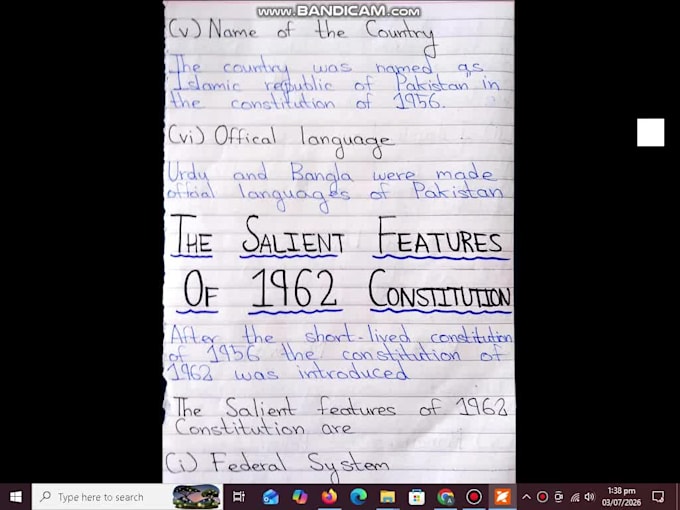 www.BANDICAM.com
(v) Name of the Country
The country was named as
"Islamic republic of Pakistan" in
the constitution of 1956.
(vi) Offical language
Urdu and Bangla were made
official languages of Pakistan
THE SALIENT FEATURES
OF 1962 CONSTITUTION
After the short-lived constitution
of 1956 the constitution of
1962 was introduced
The Salient features of 1962
Constitution are
(i) Federal System
Type here to search
1:38 pm
03/07/2026